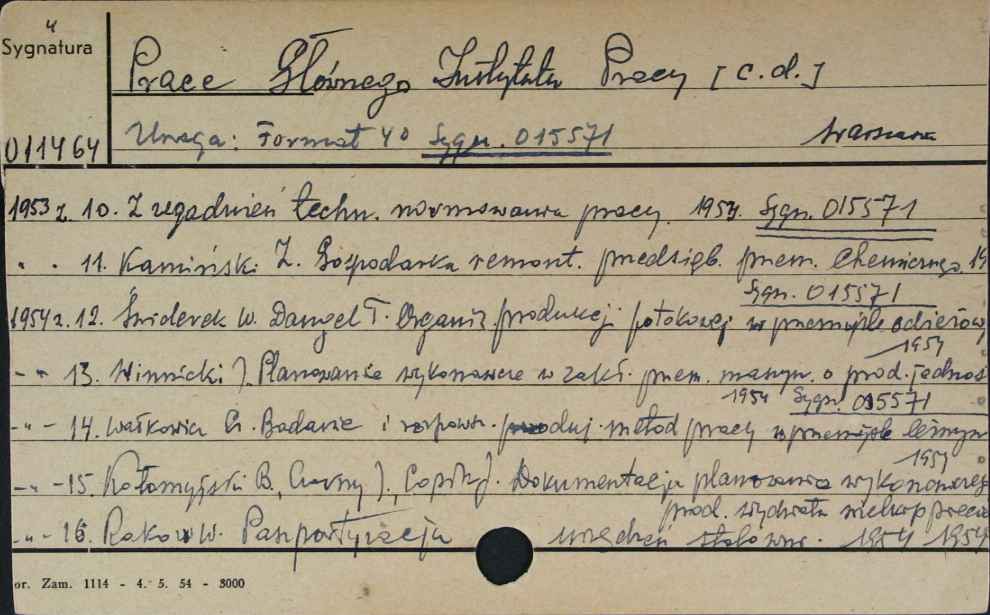 4
Sygnatura
Prace Głównego Instytutu Pracy [c.d.]
011464
Uwaga: Format 4° Sygn. 015571 Warszawa
1953 r. 10. Z zagadnień techn. normowania pracy. 1954. Sygn. 015571
" " 11. Kamiński Z. Gospodarka remont. przedsięb. przem. chemicznego. 19
Sygn. 015571
1954 r. 12. Świderek W. T. Organiz. produkcji potokowej w przemyśle odzieżowy
1954
- " 13. Winnicki J. Planowanie wykonawcze w zakł. przem. maszyn. o prod. jednos
1954 Sygn. 015571
- " - 14. Wałkowicz Cz. Badanie i rozpowsz. metod pracy w przemyśle leśnym
1954
- " - 15. Kołomyjski B., Czarny J., Dokumentacja planowania wykonawczeg
prod. wydziału
- " - 16. Rakow W. Paszportyzacja urządzeń 1954 1954
or. Zam. 1114 - 4. 5. 54 - 3000